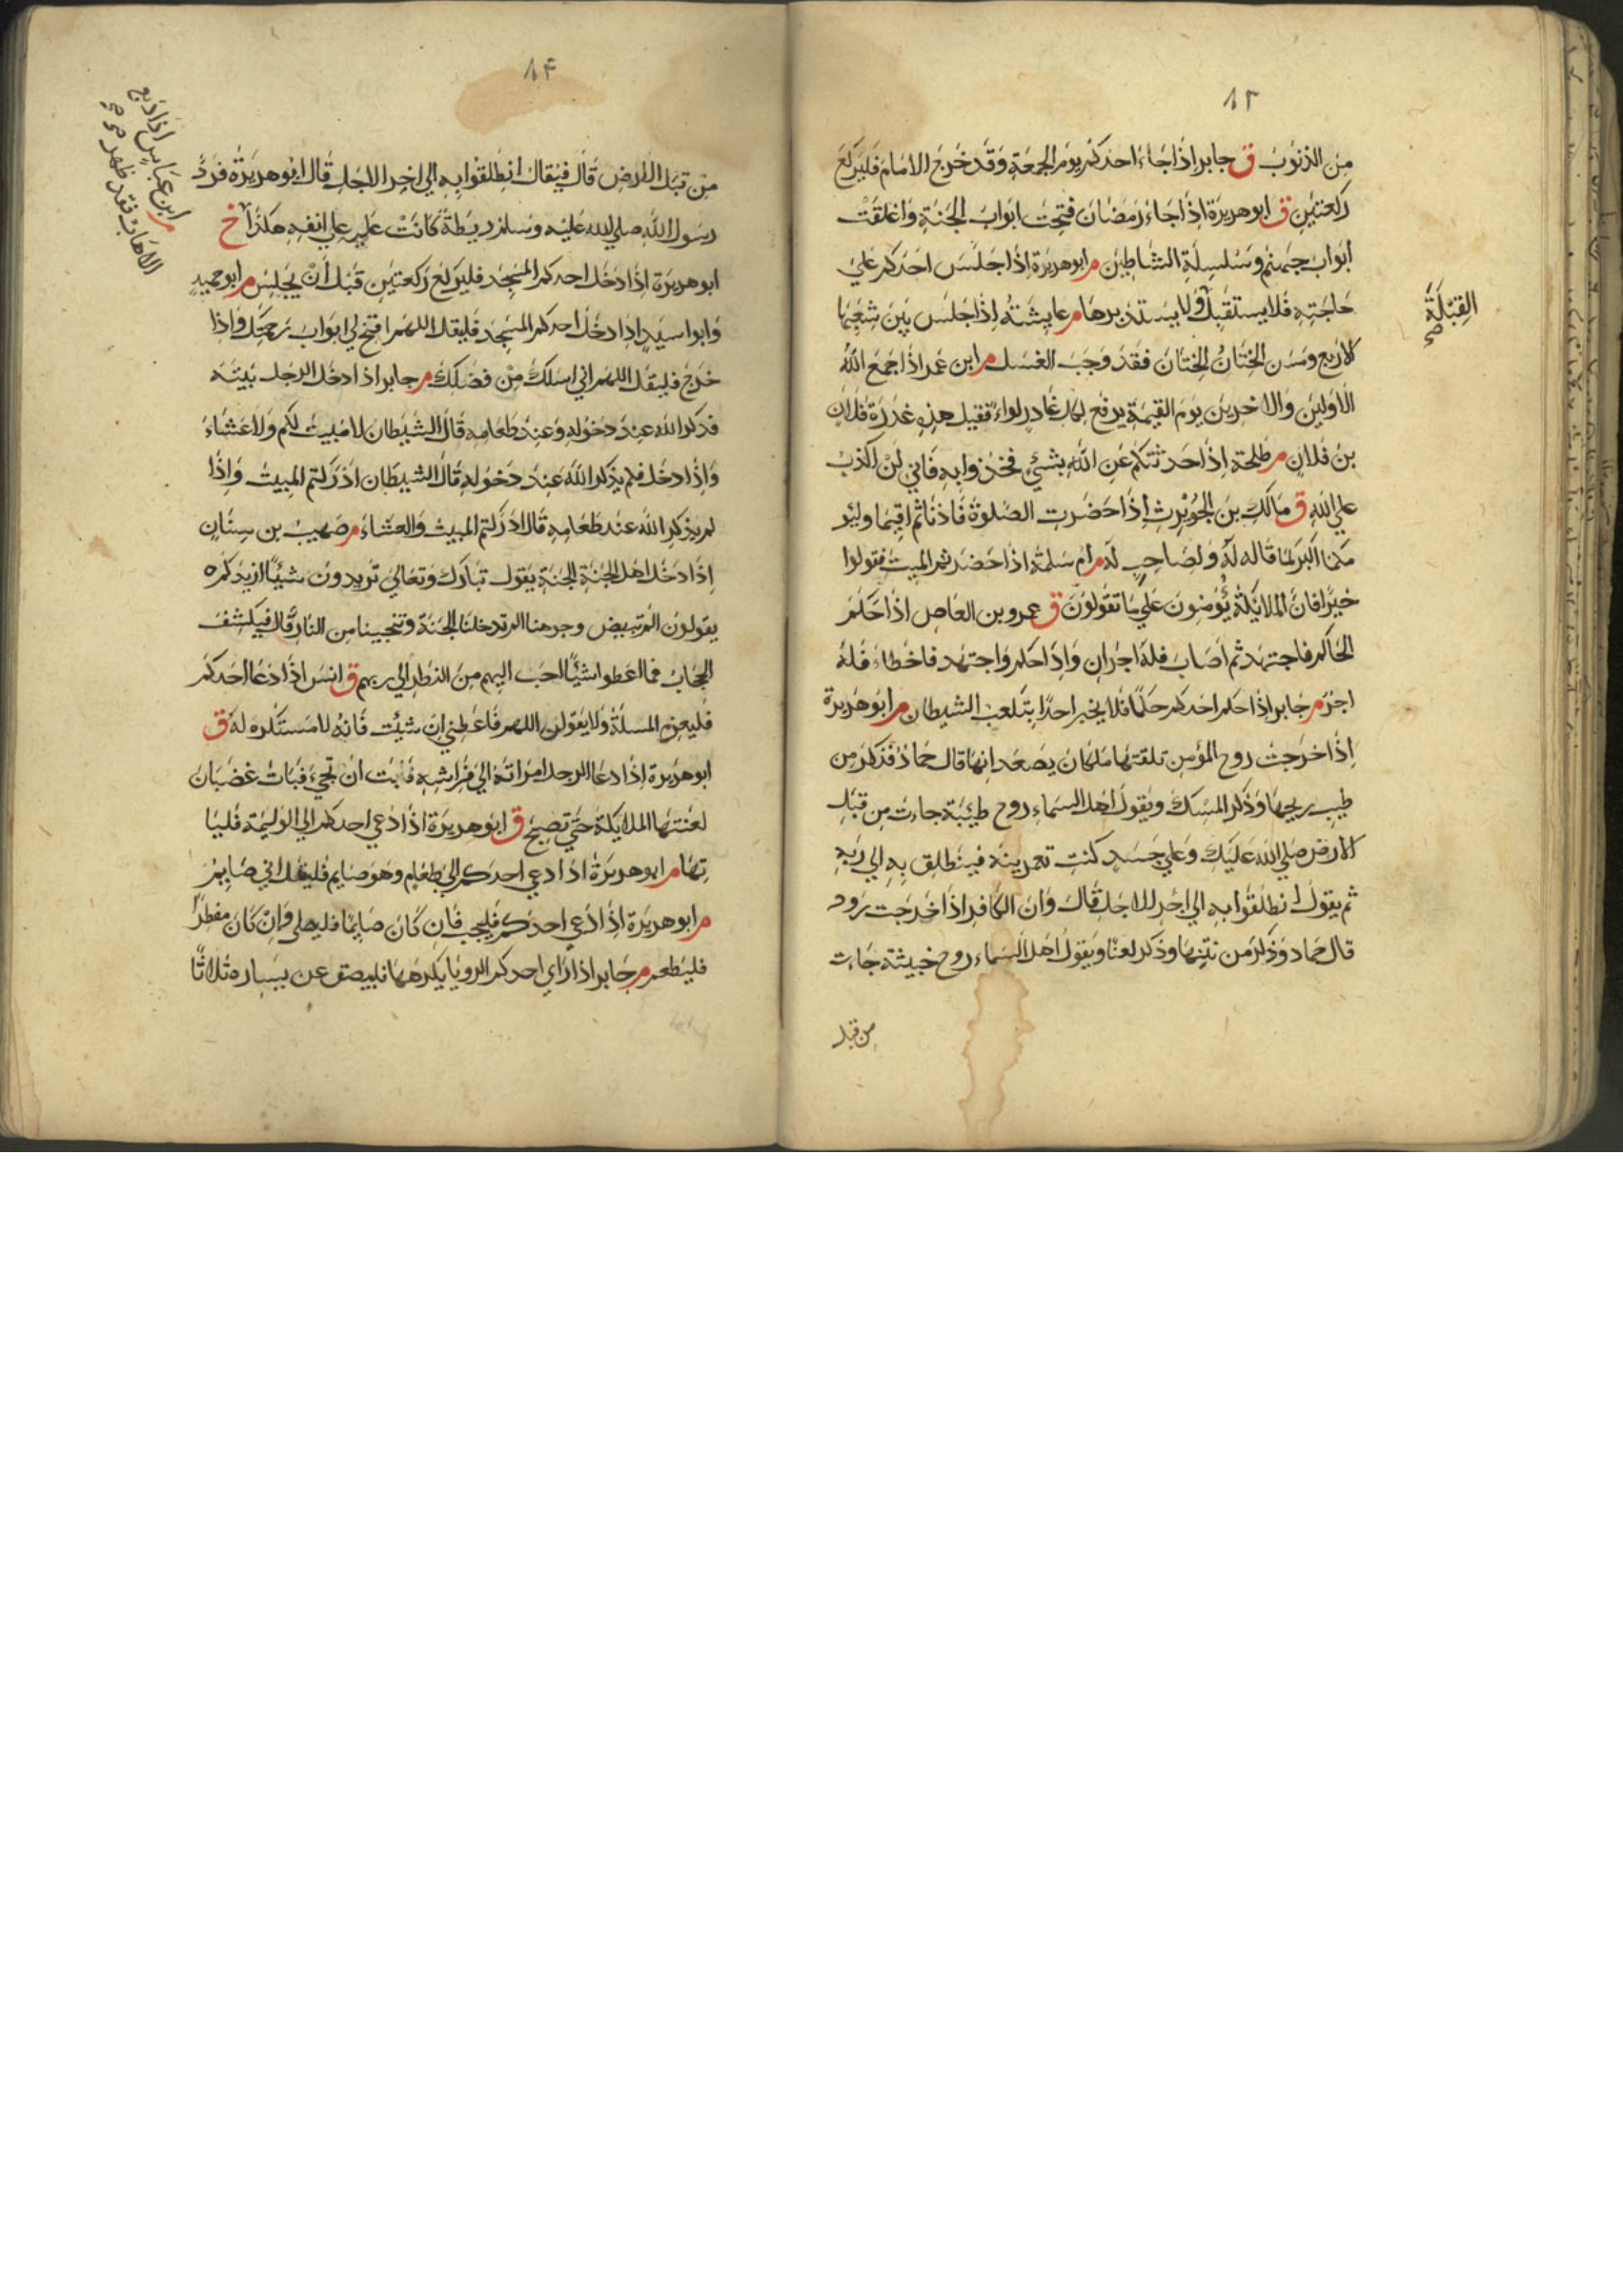 ٨٣
من الذنوب ق جابر اذا جاء احدكم يوم الجمعة وقد خرج الامام فليركع
ركعتين ق ابو هريرة اذا جاء رمضان فتحت ابواب الجنة واغلقت
ابواب جهنم وسلسلة الشاطين م ابو هريرة اذا جلس احدكم على
حاجته فلا يستقبل ولا يستدبرها م عايشة اذا جلس بين شعبها
القبلة صح
الاربع ومس الختان الختان فقد وجب الغسل م ابن عمر اذا جمع الله
الاولين والاخرين يوم القيمة يرفع لكل غادر لواء فقيل هذه غدرة فلان
بن فلان م طلحة اذا حدثتكم عن الله بشئ فخذوا به فاني لن اكذب
على الله ق مالك بن الحويرث اذا حضرت الصلوة فاذنا ثم اقيما وليؤ
مكما اكبركما قاله له ولصاحب له م ام سلمة اذا حضرتم الميت فقولوا
خيرا فان الملائكة يؤمنون على ما تقولون ق عمرو بن العاص اذا حكم
الحاكم فاجتهد ثم اصاب فله اجران واذا حكم واجتهد فاخطاء فله
اجر م جابر اذا حلم احدكم حلما فلا يخبر احدا بتلعب الشيطان م ابو هريرة
اذا خرجت روح المؤمن تلقتها ملكان يصعد انها قال حماد فذكر من
طيب ريحها وذكر المسك ويقول اهل السماء روح طيبة جاءت من قبل
الارض صلى الله عليك وعلى جسد كنت تعمرينه فينطلق به الى ربه
ثم يقول انطلقوا به الى اخر الاجل قال وان الكافر اذا خرجت روحه
قال حماد وذكر من نتنها وذكر لعنا ويقول اهل السماء روح خبيثة جاءت
من قبل
٨٤
من قبل الارض قال فيقال انطلقوا به الى اخر الاجل قال ابو هريرة فرد
رسول الله صلى الله عليه وسلم ريطة كانت عليه على انفه هكذا خ
م ابن عباس اذا دبغ
الاهاب فقد طهر صح
ابو هريرة اذا دخل احدكم المسجد فليركع ركعتين قبل ان يجلس م ابو حميد
وابو اسيد اذا دخل احدكم المسجد فليقل اللهم افتح لي ابواب رحمتك واذا
خرج فليقل اللهم اني اسلك من فضلك م جابر اذا دخل الرجل بيته
فذكر الله عند دخوله وعند طعامه قال الشيطان لا مبيت لكم ولا عشاء
واذا دخل فلم يذكر الله عند دخوله قال الشيطان ادركتم المبيت واذا
لم يذكر الله عند طعامه قال ادركتم المبيت والعشاء م صهيب بن سنان
اذا دخل اهل الجنة الجنة يقول تبارك وتعالى تريدون شيئا ازيدكم
يقولون الم تبيض وجوهنا الم تدخلنا الجنة وتنجينا من النار قال فيكشف
الحجاب فما اعطوا شيئا احب اليهم من النظر الى ربهم ق انس اذا دعا احدكم
فليعزم المسلة ولا يقولن اللهم فاعطني ان شئت فانه لا مستكره له ق
ابو هريرة اذا دعا الرجل امراته الى فراشه فابت ان تجيء فبات غضبان
لعنتها الملايكة حتى تصبح ق ابو هريرة اذا دعي احدكم الى الوليمة فليا
تها م ابو هريرة اذا دعي احدكم الى طعام وهو صايم فليقل اني صايم
م ابو هريرة اذا دعي احدكم فليجب فان كان صايما فليصل وان كان مفطرا
فليطعم م جابر اذا راي احدكم الرويا يكرهها فليبصق عن يساره ثلاثا